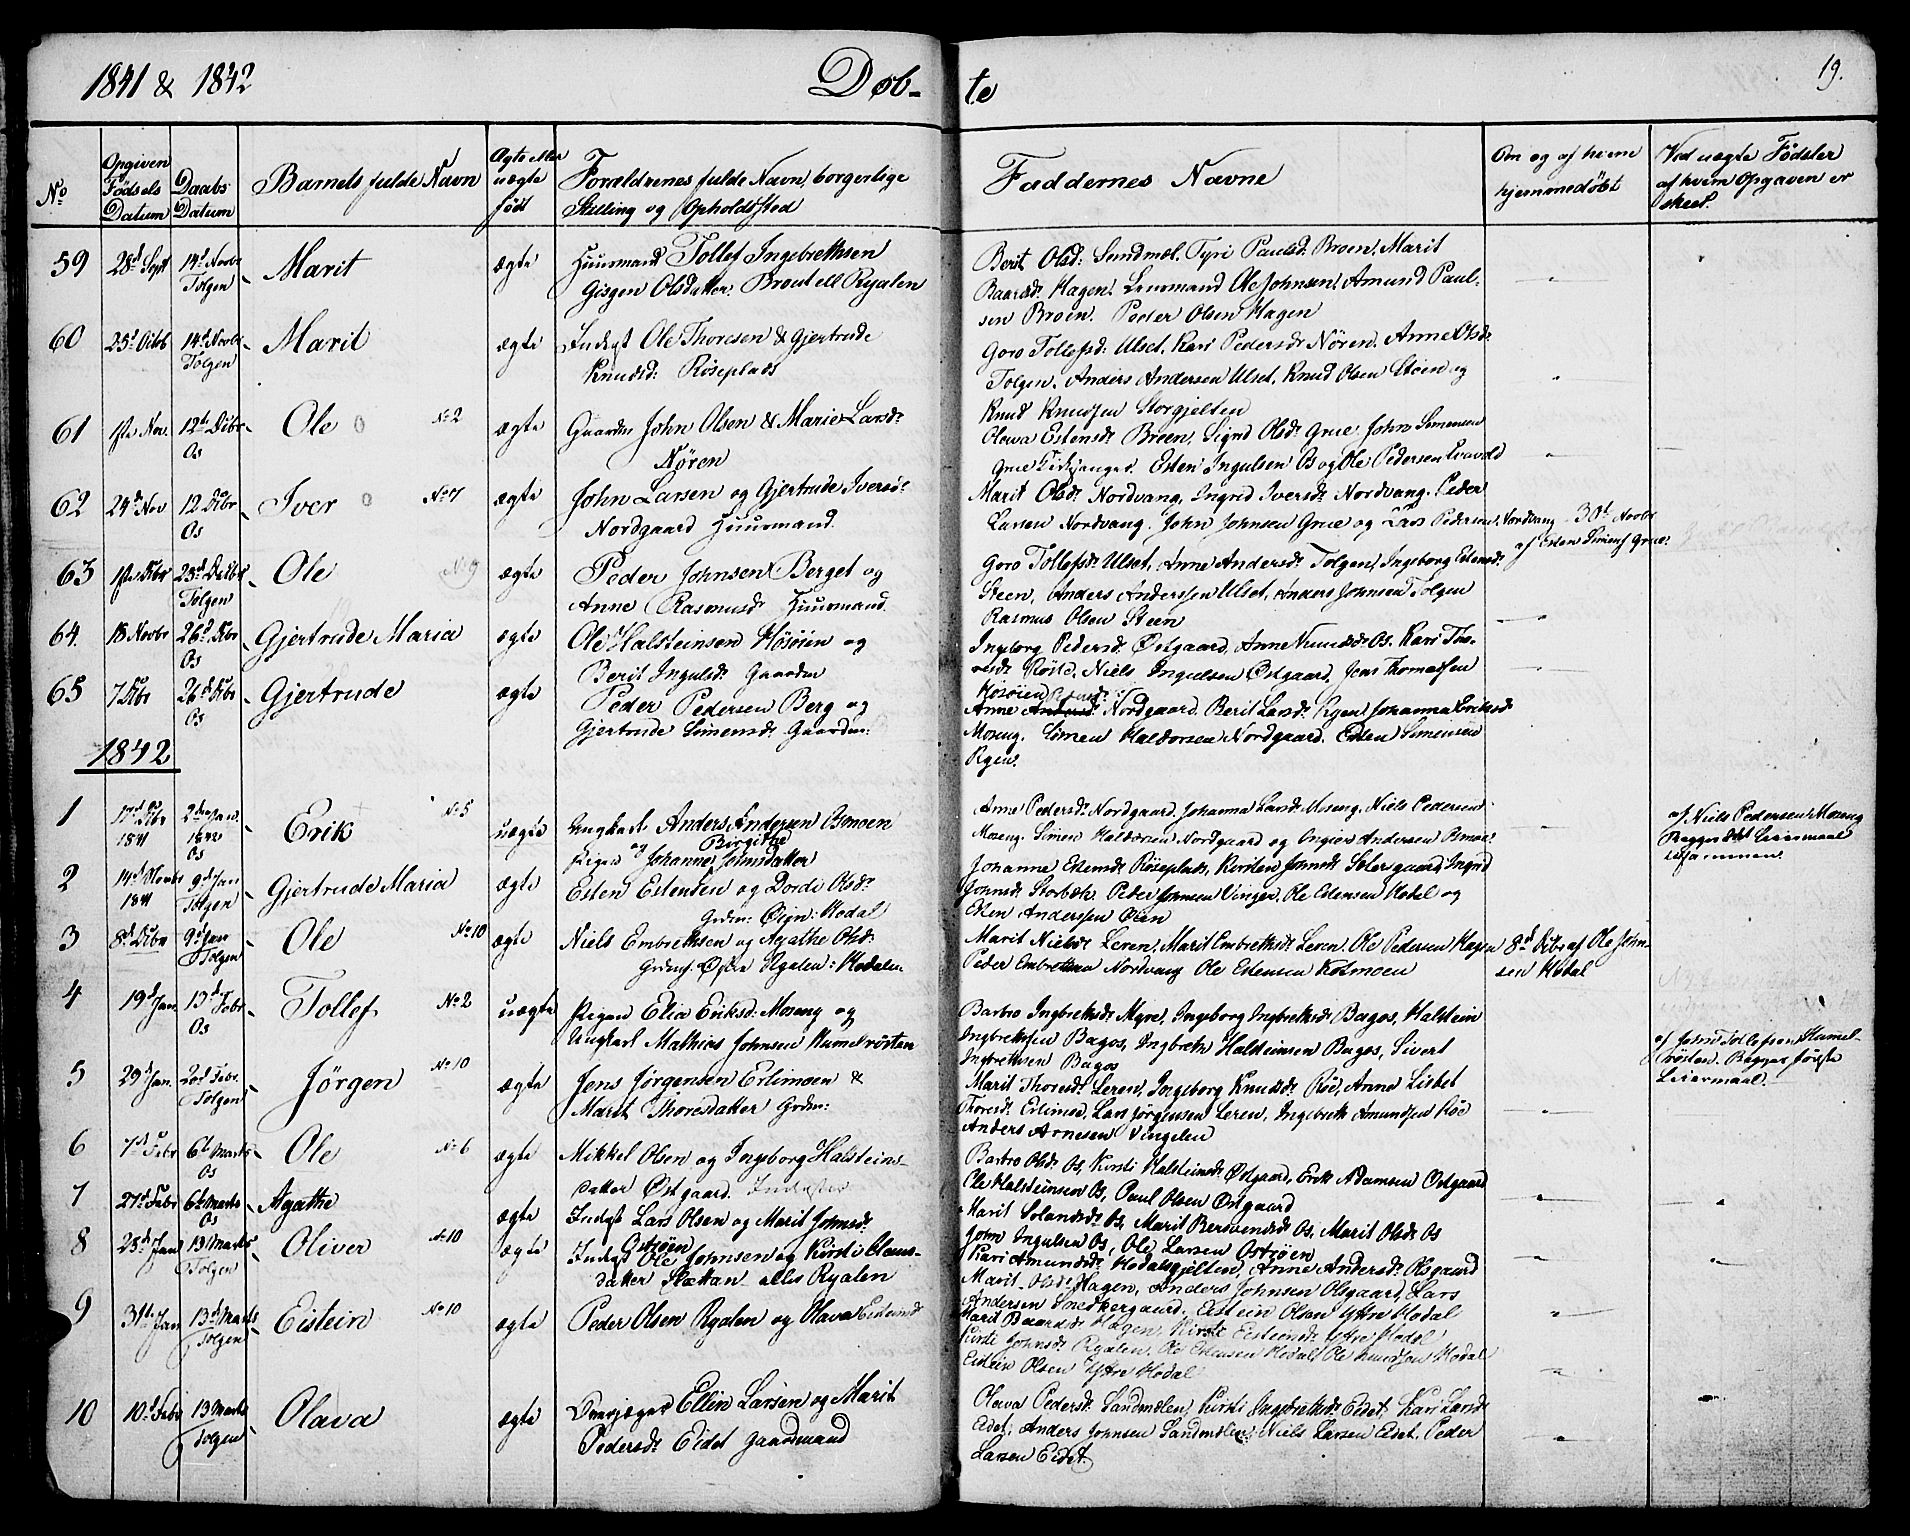 1841 & 1842 Døb-
te 19.
No
Opgiven
Fødsels
Datum
Daabs
Datum
Barnets fulde Navn
Ægte eller
uægte
født
Forældrenes fulde Navn, borgerlige
Stilling og Opholdssted
Faddernes Navne
Om og af hvem
hjemmedøbt
Ved uægte Fødsler
af hvem Opgaven er
skeet.
59 28d Sept 14d Novbr
Tolgen
Marit
ægte
Huusmand Tollef Ingebrethsen
Olsdatter. Broutell Ryalen
Berit Olsd: Sundmoel. Tyri Paulsd: Broen. Marit
Baarsd: Hagen. Leusmand Ole Johnsen. Amund Paul-
sen Broen. Peder Olsen Hagen
60 25d Octob 14d Novbr
Tolgen
Marit
ægte
Inderst Ole Thoresen & Gjertrude
Knudsd: Røseplads
Goro Tollefsd: Ulset, Kari Pedersd: Nøren. Anne Olsd:
Tolgen. Anders Andersen Ulset. Knud Olsen Støen og
Knud Knudsen Storgjelten
61 1ste Nov. 12te Dcbr
Os
Ole No 2
ægte
Gaardm John Olsen & Marie Larsd:
Nøren
Olava Estensd: Broen. Sigrid Olsd: Grue. John Simensen
Grue Kirksanger. Esten Ingulsen Os og Ole Pedersen
62 24d Nov 12 Dcbr
Os
Iver No 7
ægte
John Larsen og Gjertrude Iversd:
Nordgaard Huusmand.
Marit Olsd: Nordvang, Ingrid Iversd: Nordvang. Peder
Larsen Nordvang. John Johnsen Grue og Lars Pedersen Nordvang
30d Novbr
af Esten Simens: Grue
63 1ste Dcbr 25d Decbr
Tolgen
Ole No 9
ægte
Peder Johnsen Berget og
Anne Rasmusd: Huusmand
Goro Tollefsd: Ulset, Anne Andersd: Tolgen, Ingeborg Estensd:
Steen, Anders Anderssen Ulset, Anders Johnsen Tolgen
Rasmus Olsen Steen
64. 18 Novbr 26d Dcbr
Os
Gjertrude Maria
ægte
Ole Halsteinsen Høsøien og
Berit Ingulsd: Gaardm
Ingeborg Pedersd: Østgaard, Anne Knudsd: Os. Kari Tho-
resd: Røste, Niels Ingulsen Østgaard, Jens Thomassen
Høsøien
65 7 Dcbr 26d Dcbr
Os
Gjertrude
ægte
Peder Pedersen Berg og
Gjertrude Simensd: Gaardm:
Anne Nordgaard. Berit Larsd: Rgen. Johanna Eriksd:
Moseng. Simen Haldorsen Nordgaard. Esten Simensen
Rgen.
1842
1 17d Dcbr
1841
2den Jan.
1842
Os
Erik No 5
uægte
Ungkarl Anders Andersen Bmoen
Birgithe
Pigen og Johanne Johnsdatter
Anne Pedersd: Nordgaard. Johanna Larsd: Moseng. Niels Pedersen
Moseng. Simen Haldorsen Nordgaard og Ingier Andersen
af Niels Pedersen Moseng
Begges 1st Leiermaal
tilsammen.
2 14d Novbr
1841
9d Jan
Tolgen
Gjertrude Maria
ægte
Esten Estensen og Dordi Olsd:
Grdm: Øien: Hodal
Johanne Estensd: Røseplads, Kersten Jonsd: Solersgaard, Ingrid
Johnsd: Storbæk. Peder Jonsen Vingen, Ole Estensen Hodal og
Esten Anderssen Øien
3 8d Dcbr 9d Jan
Tolgen
Ole No 10
ægte
Niels Embrethsen og Agathe Olsd:
Grdm: Østre Ryalen: Hodalen
Marit Nielsd: Leren, Marit Embrethsd: Leren, Ole Pedersen Hagen
Peder Embrethsen Nordvang Ole Estensen Kolmoen
8d Dcbr af Ole John-
sen Hodal
4 19d Jan. 13d Febr
Os
Tollef No 2
uægte
Pigen Elia Eriksd: Moseng og
Ungkarl Mathias Johnsen Hummelvøsten
Barbro Ingbrethsd: Myre, Ingeborg Ingbrethsd: Bagos, Halstein
Ingbrethsen Bagos, Ingbreth Halsteinsen Bagos, Sivert
Ingbrethsen Bagos
af John Tollefsen Humel-
vøsten. Begges første
Leiermaal.
5 29d Jan. 20d Febr.
Tolgen
Jörgen No 10
ægte
Jens Jørgensen Erlimoen &
Marit Thoresdatter Grdm:
Marit Thoresd: Leren, Ingeborg Knudsd: Röe, Anne Lisbet
Thoresd: Erlimoe, Lars Jörgensen Leren, Ingebreth Amundsen Röe
Anders Arnesen Vingelen
6 7d Febr 6te Marts
Os
Ole No 6
ægte
Mikkel Olsen og Ingeborg Halsteins-
datter Østgaard. Inderster
Barbro Olsd: Os, Kirsti Halsteinsd: Østgaard, Erik Adamsen Østgaard
Ole Halsteinsen Os, Paul Olsen Østgaard
7 27d Febr 6te Marts
Os
Agathe
ægte
Inderst Lars Olsen og Marit Johnsd:
Osterøen
Marit Os, Marit Os, Marit Olsd: Os
John Ingulsen Os, Ole Larsen Osterøen
8 25d Jan 13 Marts
Tolgen
Oliver No 10
ægte
Inderst Ole Johnsen og Kirsti Olaus-
datter Slettan alles Ryalen
Kari Amundsd: Hodalsgjelten, Anne Andersd: Olsgaard
Marit Olsd: Hagen, Anders Johnsen Olsgaard, Lars
Andersen Snedkergaard. Eistein Olsen Ytre Hodal
9 31te Jan 13d Marts
Tolgen
Eistein No 10
ægte
Peder Olsen Ryalen og Olava Eistensd:
Marit Baardsd: Hagen, Kirsti Eisteinsd: Ytre Hodal
Kirsti Johnsd: Ryalen, Ole Estensen Hodal, Ole Knudsen Hodal
Eistein Olsen Ytre Hodal
10 10d Febr 13 Marts
Tolgen
Olava
ægte
Ellin Larsen og Marit
Pedersd: Eidet Gaardmand
Olava Pedersd: Sandmælen, Kirsti Ingebrethsd: Eidet, Kari Larsd:
Eidet, Anders Johnsen Sandmælen, Niels Larsen Eidet. Peder
Larsen Eidet